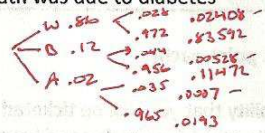 ath was due to diabetes
W .86 .028 .02408 -
.972 .83592
B .12 .044 .00528 -
.956 .11472
A .02 .035 .0007 -
.965 .0193